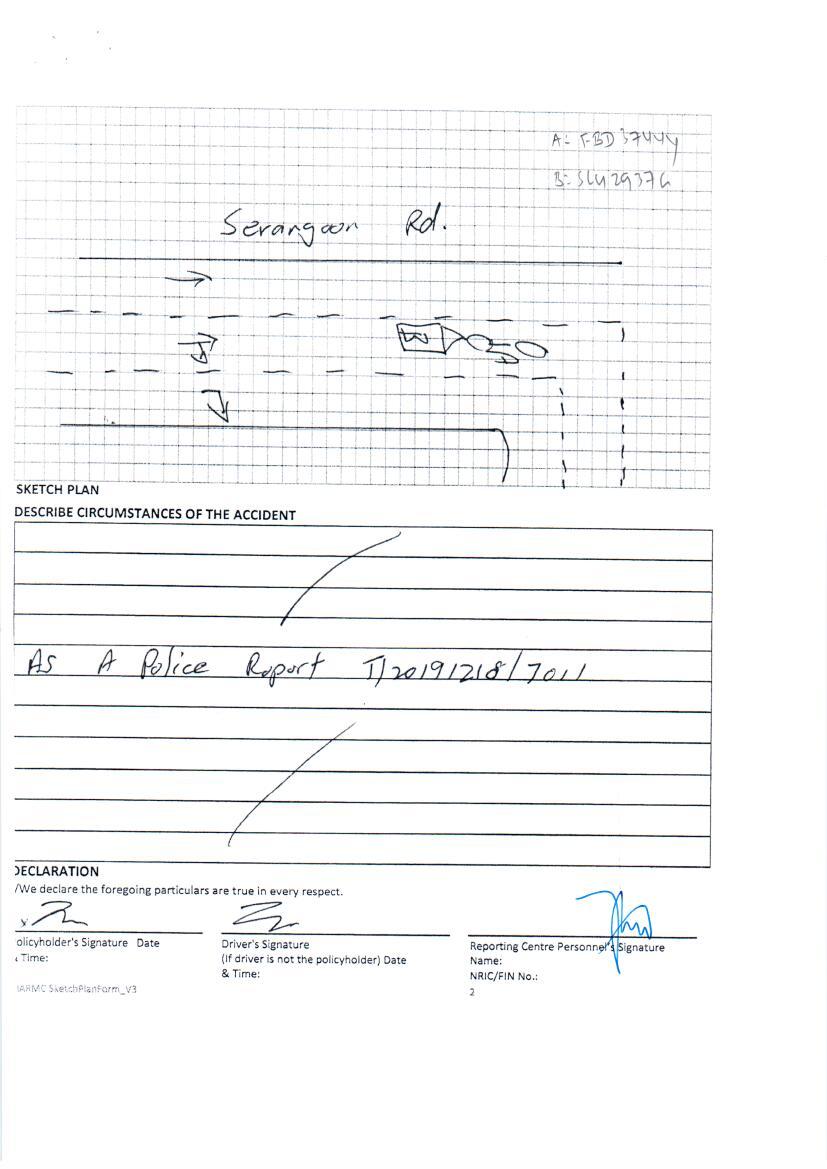 A: FBD3744Y
B: SLU2937G
Serangoon Rd.
B
SKETCH PLAN
DESCRIBE CIRCUMSTANCES OF THE ACCIDENT
As A Police Report T/20191218/7011
DECLARATION
/We declare the foregoing particulars are true in every respect.
olicyholder's Signature Date
Time:
Driver's Signature
(If driver is not the policyholder) Date
& Time:
Reporting Centre Personnel's Signature
Name:
NRIC/FIN No.:
IARMC SketchPlanForm_V3
2